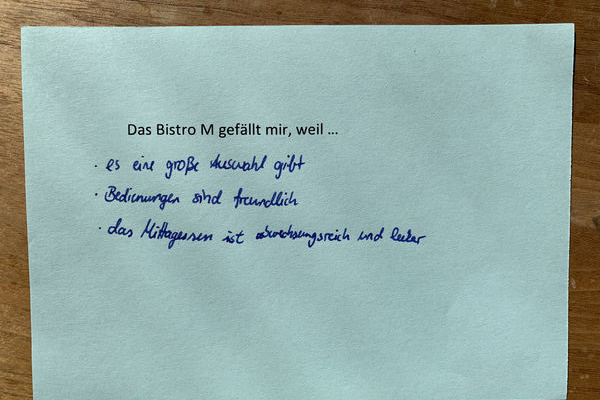 Das Bistro M gefällt mir, weil ...
· es eine große Auswahl gibt
· Bedienungen sind freundlich
· das Mittagessen ist abwechsungsreich und lecker